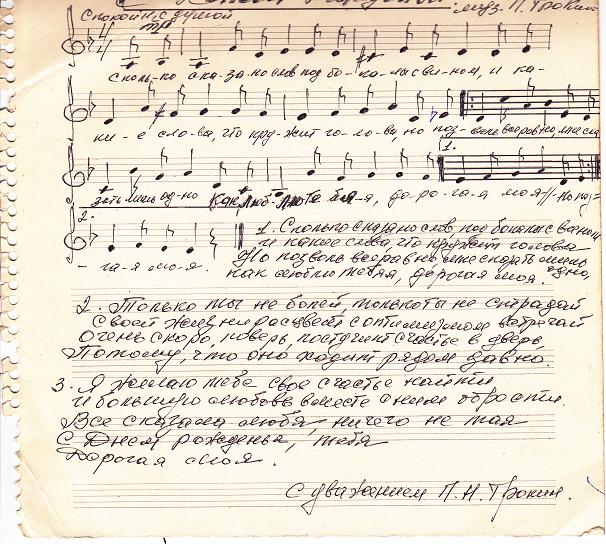 Спокойно, с думой
муз. П. Трокин
Сколь-ко ска-за-но слов под бо-ка-лы с ви-ном, и ка-
ки-е сло-ва, что кру-жит го-ло-ва, но поз-воль все равно, мне ска
1.
зать лишь од-но как люб-лю те-бя-я, до-ро-га-я моя. Но поз=
2.
га-я мо-я.
1. Сколько сказано слов, под бокалы с вином
и какие слова, что кружит голова
Но позволь всеравно мне сказать лишь одно,
как люблю тебяя, дорогая моя.
2. Только ты не болей, только ты не страдай
Своей жизни рассвет с оптимизмом встречай
Очень скоро, поверь, постучит счастье в дверь,
Потому, что оно ходит рядом давно.
3. Я желаю тебе свое счастье найти
и большую любовь вместе с ним обрести.
Все сказала любя ничего не тая
С Днем рожденья, тебя
Дорогая моя.
С уважением П. Н. Трокин.